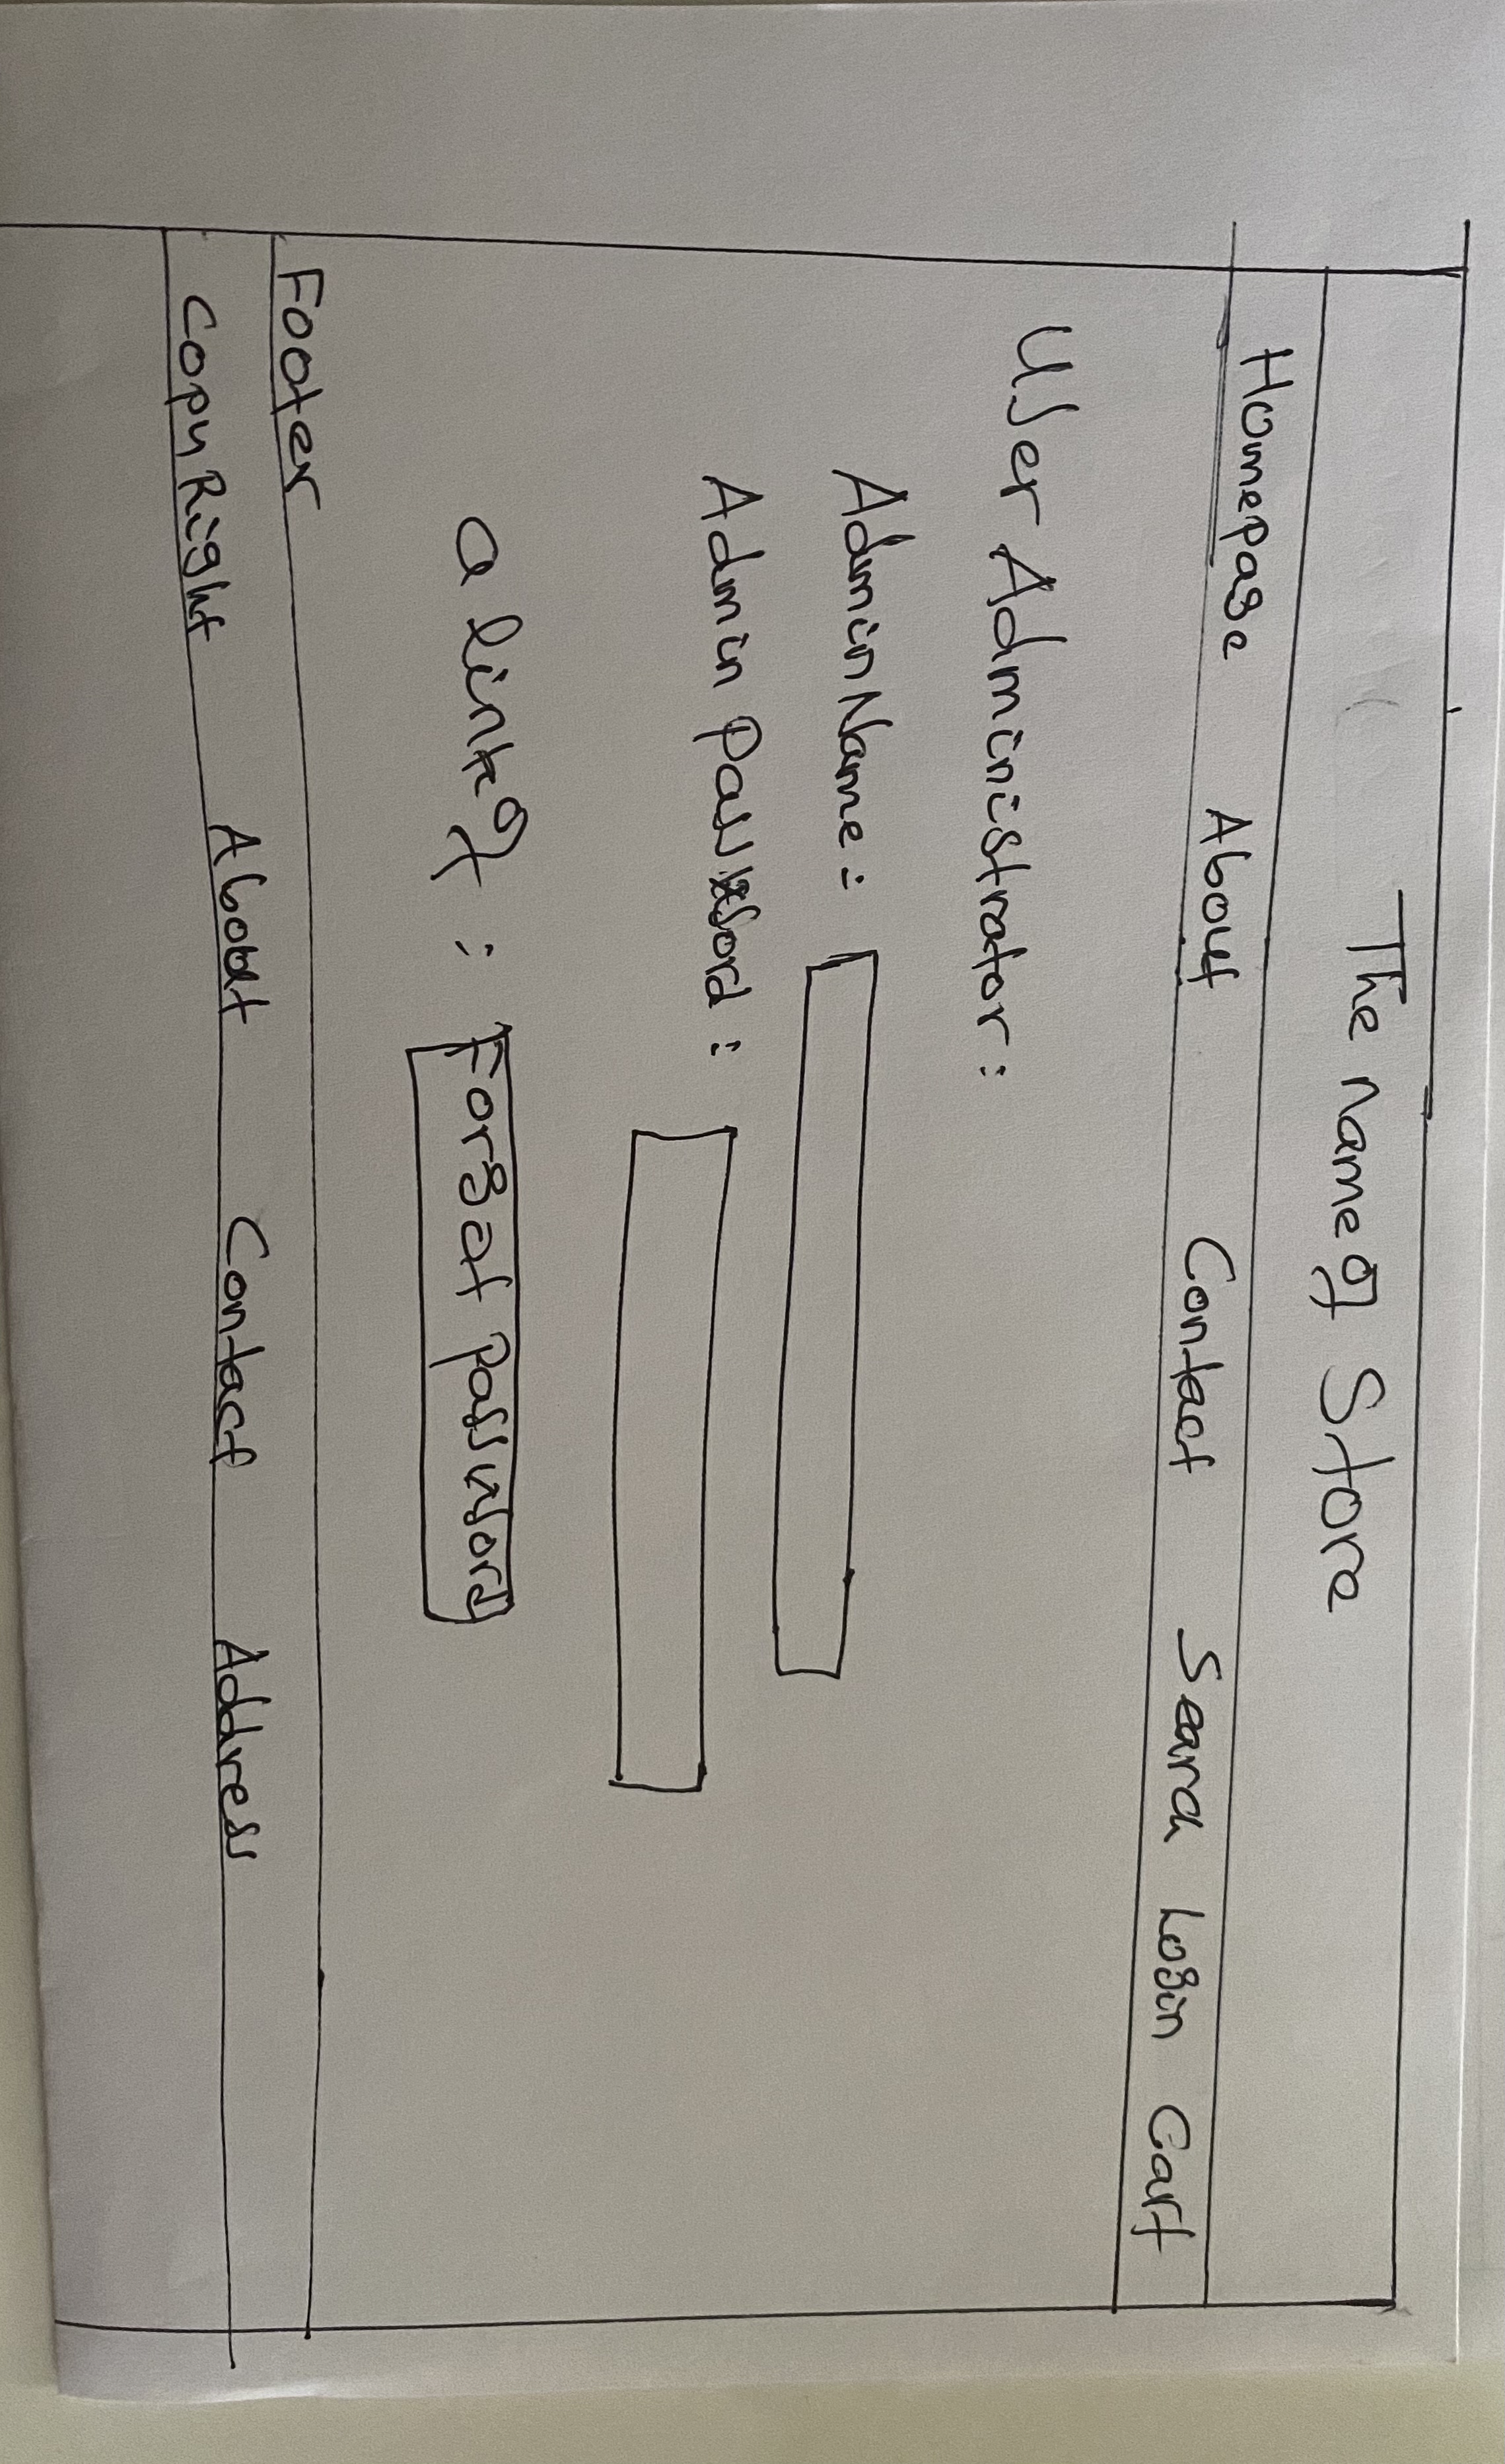 The name of Store
Homepage About Contact Search Login Cart
User Administrator:
Admin Name:
Admin password:
a link of : Forgat password
Footer
CopyRight About Contact Address